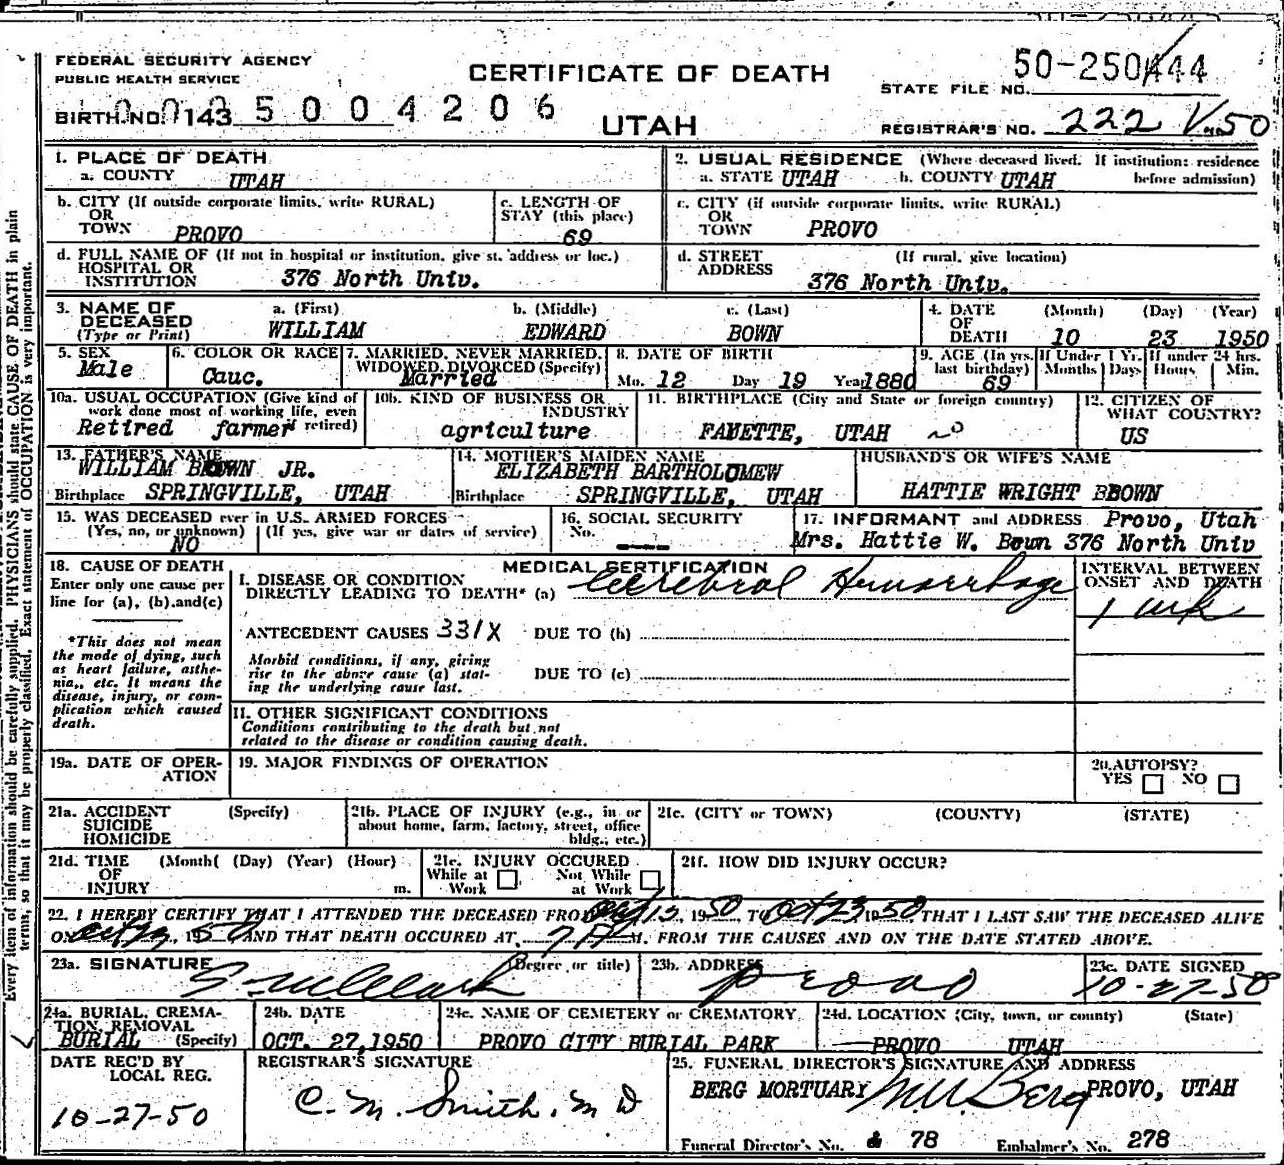 FEDERAL SECURITY AGENCY
PUBLIC HEALTH SERVICE
CERTIFICATE OF DEATH
UTAH
BIRTH NO. 143 5 0 0 4 2 0 6
STATE FILE NO. 50-250444
REGISTRAR'S NO. 222
1. PLACE OF DEATH
a. COUNTY UTAH
2. USUAL RESIDENCE (Where deceased lived. If institution: residence before admission)
a. STATE UTAH b. COUNTY UTAH
b. CITY (If outside corporate limits, write RURAL)
OR
TOWN PROVO
c. LENGTH OF
STAY (this place)
69
c. CITY (if outside corporate limits, write RURAL)
OR
TOWN PROVO
d. FULL NAME OF (If not in hospital or institution, give st. address or loc.)
HOSPITAL OR
INSTITUTION 376 North Univ.
d. STREET (If rural, give location)
ADDRESS 376 North Univ.
3. NAME OF
DECEASED
(Type or Print)
a. (First) b. (Middle) c. (Last)
WILLIAM EDWARD BOWN
4. DATE
OF
DEATH
(Month) (Day) (Year)
10 23 1950
5. SEX
Male
6. COLOR OR RACE
Cauc.
7. MARRIED, NEVER MARRIED,
WIDOWED, DIVORCED (Specify)
Married
8. DATE OF BIRTH
Mo. 12 Day 19 Year 1880
9. AGE (In yrs.
last birthday)
69
If Under 1 Yr.
Months Days
If under 24 hrs.
Hours Min.
10a. USUAL OCCUPATION (Give kind of
work done most of working life, even
retired)
Retired farmer
10b. KIND OF BUSINESS OR
INDUSTRY
agriculture
11. BIRTHPLACE (City and State or foreign country)
FAYETTE, UTAH
12. CITIZEN OF
WHAT COUNTRY?
US
13. FATHER'S NAME
WILLIAM BOWN JR.
Birthplace SPRINGVILLE, UTAH
14. MOTHER'S MAIDEN NAME
ELIZABETH BARTHOLOMEW
Birthplace SPRINGVILLE, UTAH
HUSBAND'S OR WIFE'S NAME
HATTIE WRIGHT BBOWN
15. WAS DECEASED ever in U.S. ARMED FORCES
(Yes, no, or unknown) (If yes, give war or dates of service)
NO
16. SOCIAL SECURITY
No.
17. INFORMANT and ADDRESS Provo, Utah
Mrs. Hattie W. Bown 376 North Univ
18. CAUSE OF DEATH
Enter only one cause per
line for (a), (b) and (c)
*This does not mean
the mode of dying, such
as heart failure, asthe-
nia,, etc. It means the
disease, injury, or com-
plication which caused
death.
MEDICAL CERTIFICATION
I. DISEASE OR CONDITION
DIRECTLY LEADING TO DEATH* (a) Cerebral Hemorrhage
INTERVAL BETWEEN
ONSET AND DEATH
1 wk
ANTECEDENT CAUSES 331X DUE TO (b)
Morbid conditions, if any, giving
rise to the above cause (a) stat-
ing the underlying cause last.
DUE TO (c)
II. OTHER SIGNIFICANT CONDITIONS
Conditions contributing to the death but not
related to the disease or condition causing death.
19a. DATE OF OPER-
ATION
19. MAJOR FINDINGS OF OPERATION
20. AUTOPSY?
YES NO
21a. ACCIDENT (Specify)
SUICIDE
HOMICIDE
21b. PLACE OF INJURY (e.g., in or
about home, farm, factory, street, office
bldg., etc.)
21c. (CITY or TOWN) (COUNTY) (STATE)
21d. TIME (Month( (Day) (Year) (Hour)
OF
INJURY m.
21e. INJURY OCCURED
While at Work Not While at Work
21f. HOW DID INJURY OCCUR?
22. I HEREBY CERTIFY THAT I ATTENDED THE DECEASED FROM Oct 13, 1950, TO Oct 23 1950 THAT I LAST SAW THE DECEASED ALIVE
ON Oct 1950 AND THAT DEATH OCCURED AT 7 P M. FROM THE CAUSES AND ON THE DATE STATED ABOVE.
23a. SIGNATURE (Degree or title)
Clark
23b. ADDRESS
Provo
23c. DATE SIGNED
10-27-50
24a. BURIAL, CREMA-
TION, REMOVAL
BURIAL (Specify)
24b. DATE
OCT. 27, 1950
24c. NAME OF CEMETERY or CREMATORY
PROVO CITY BURIAL PARK
24d. LOCATION (City, town, or county) (State)
PROVO UTAH
DATE REC'D BY
LOCAL REG.
10-27-50
REGISTRAR'S SIGNATURE
C. M. Smith, M D
25. FUNERAL DIRECTOR'S SIGNATURE AND ADDRESS
BERG MORTUARY Berg PROVO, UTAH
Funeral Director's No. 78 Embalmer's No. 278
Every item of information should be carefully supplied. PHYSICIANS should state CAUSE OF DEATH in plain
terms, so that it may be properly classified. Exact statement of OCCUPATION is very important.